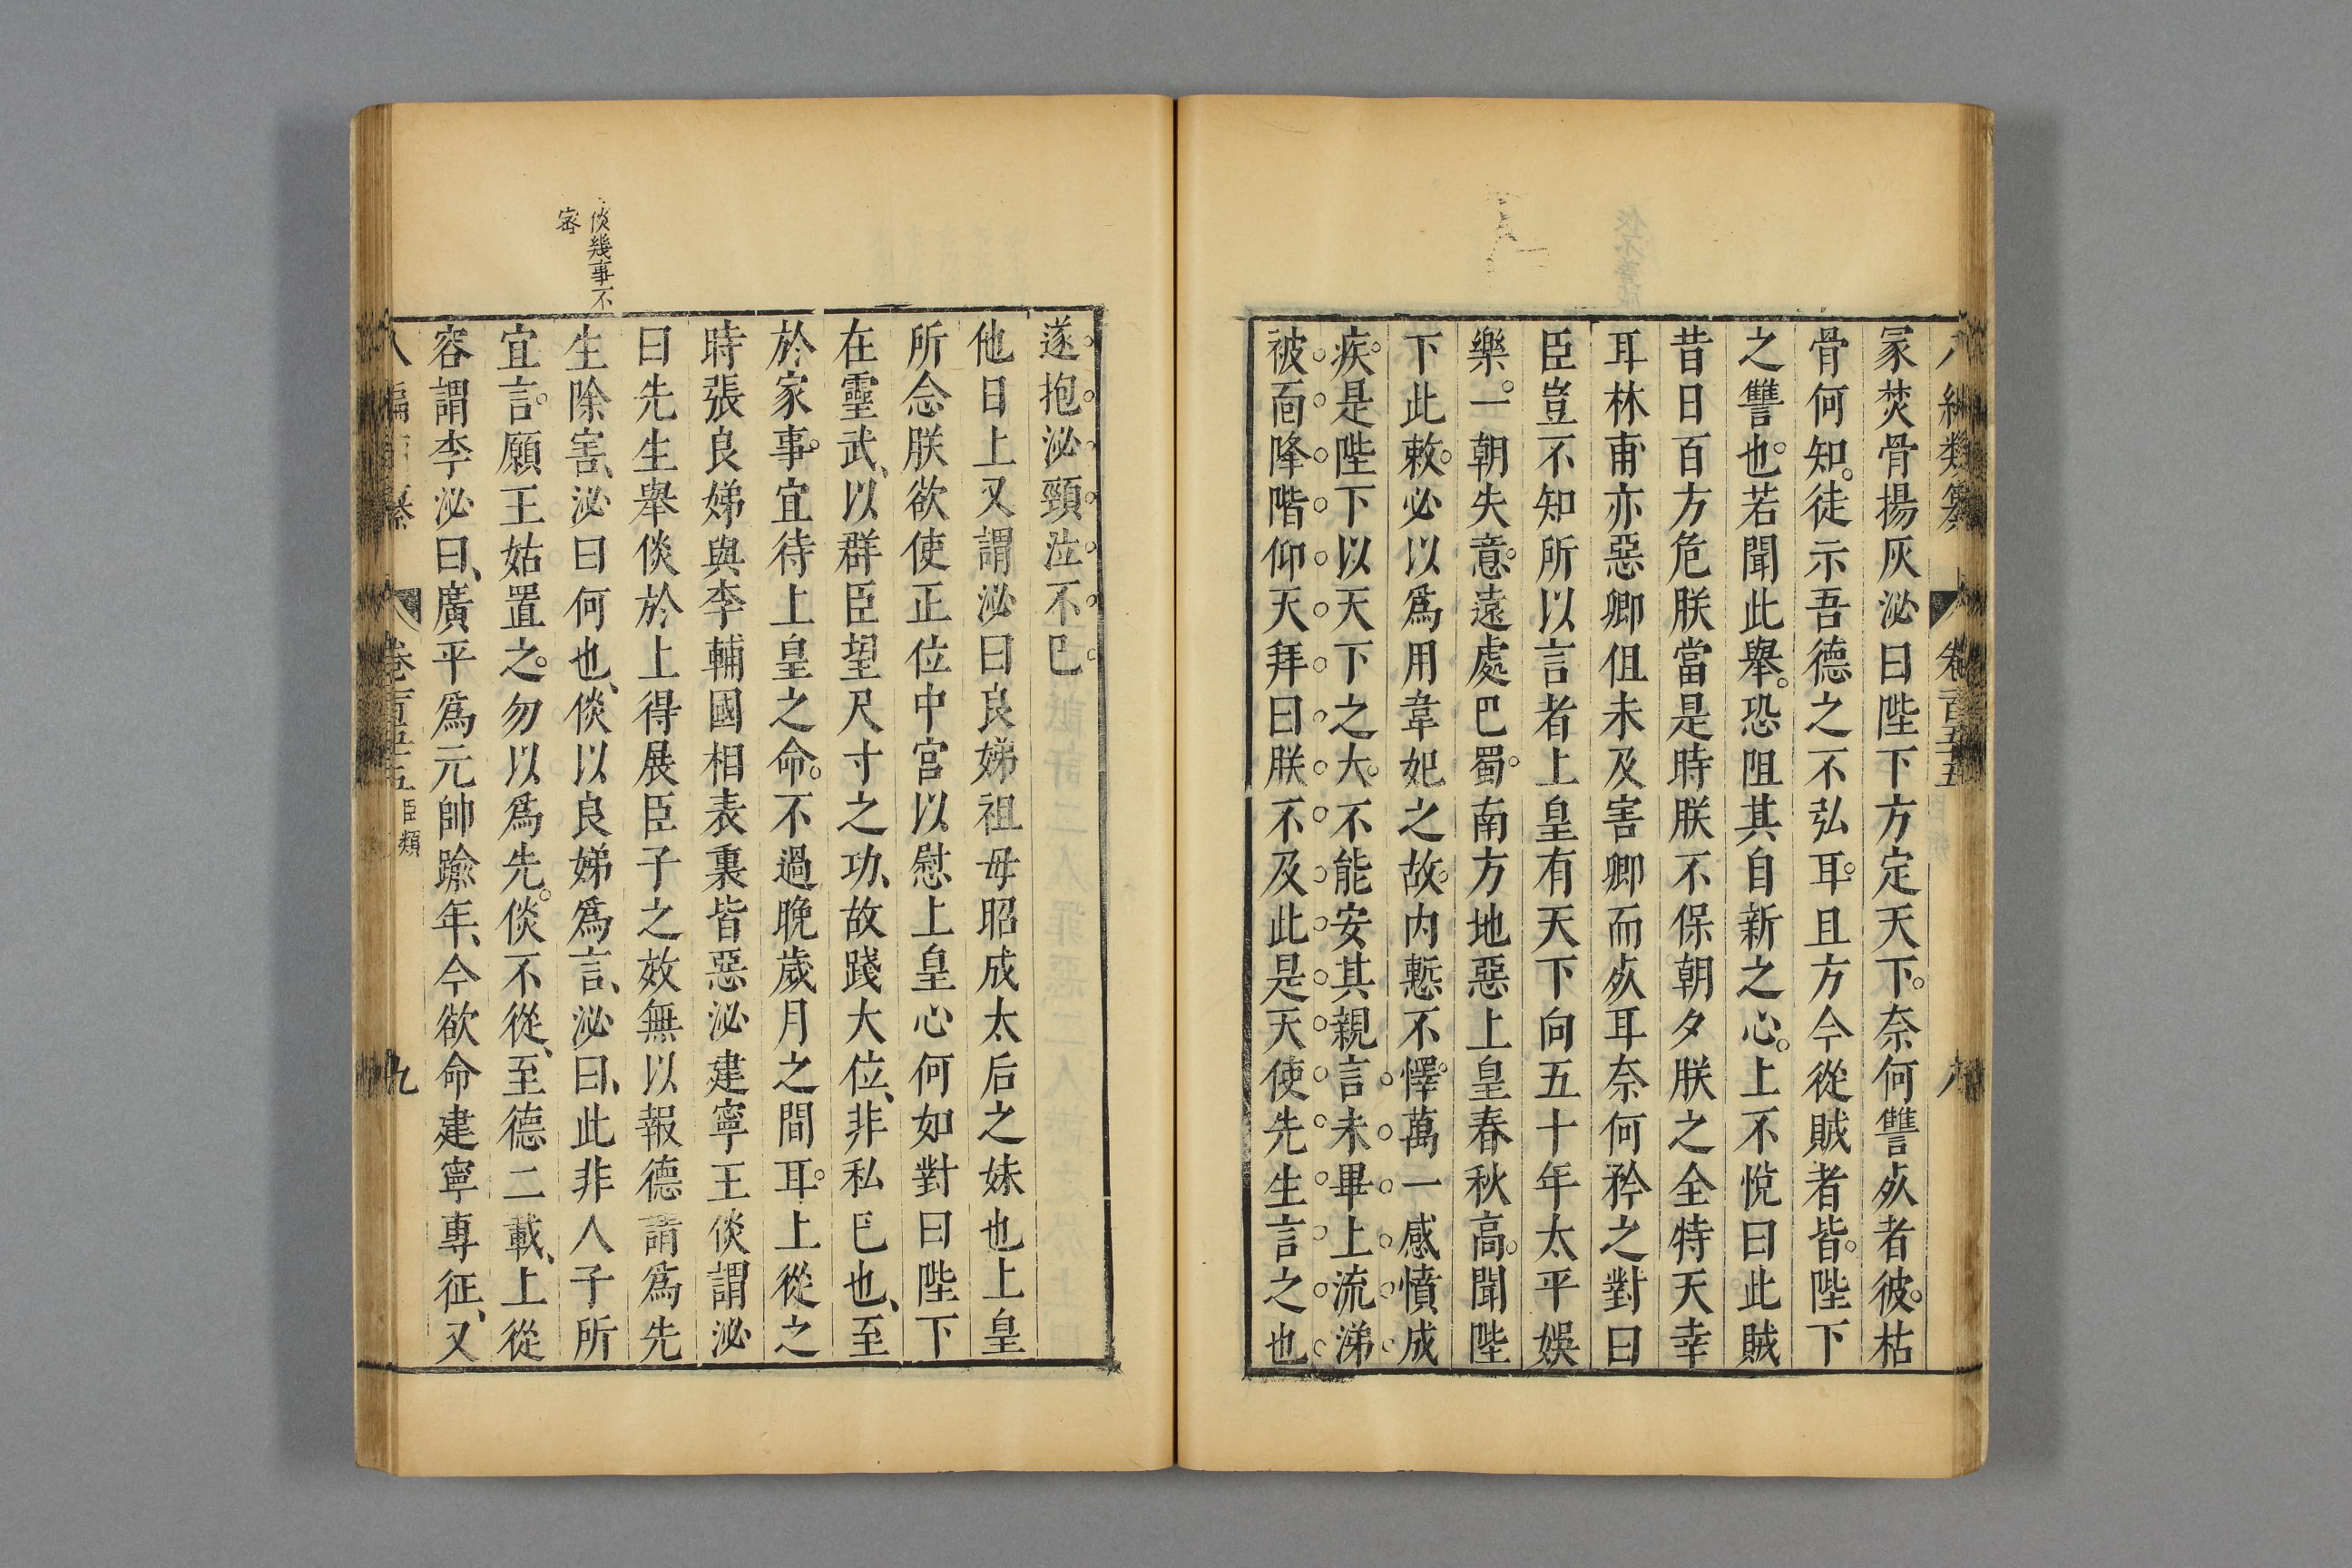 冡焚骨揚灰泌曰陛下方定天下奈何讐㱙者彼枯
骨何知徒示吾德之不弘耳且方今從賊者皆陛下
之讐也若聞此舉恐阻其自新之心上不悅曰此賊
昔日百方危朕當是時朕不保朝夕朕之全特天幸
耳林甫亦惡卿但未及害卿而㱙耳奈何矜之對曰
臣豈不知所以言者上皇有天下向五十年太平娛
樂一朝失意遠處巴蜀南方地惡上皇春秋高聞陛
下此敕必以爲用韋妃之故内慙不懌萬一感憤成
疾是陛下以天下之大不能安其親言未畢上流涕
被面降階仰天拜曰朕不及此是天使先生言之也
遂抱泌頸泣不已
他日上又謂泌曰良娣祖母昭成太后之妹也上皇
所念朕欲使正位中宮以慰上皇心何如對曰陛下
在靈武以群臣望尺寸之功故踐大位非私已也至
於家事宜待上皇之命不過晚歲月之間耳上從之
時張良娣與李輔國相表裏皆惡泌建寧王倓謂泌
曰先生舉倓於上得展臣子之效無以報德請爲先
生除害泌曰何也倓以良娣爲言泌曰此非人子所
宜言願王姑置之勿以爲先倓不從至德二載上從
容謂李泌曰廣平爲元帥踰年今欲命建寧專征又
倓幾事不
密
卷一百五十五 臣類
九